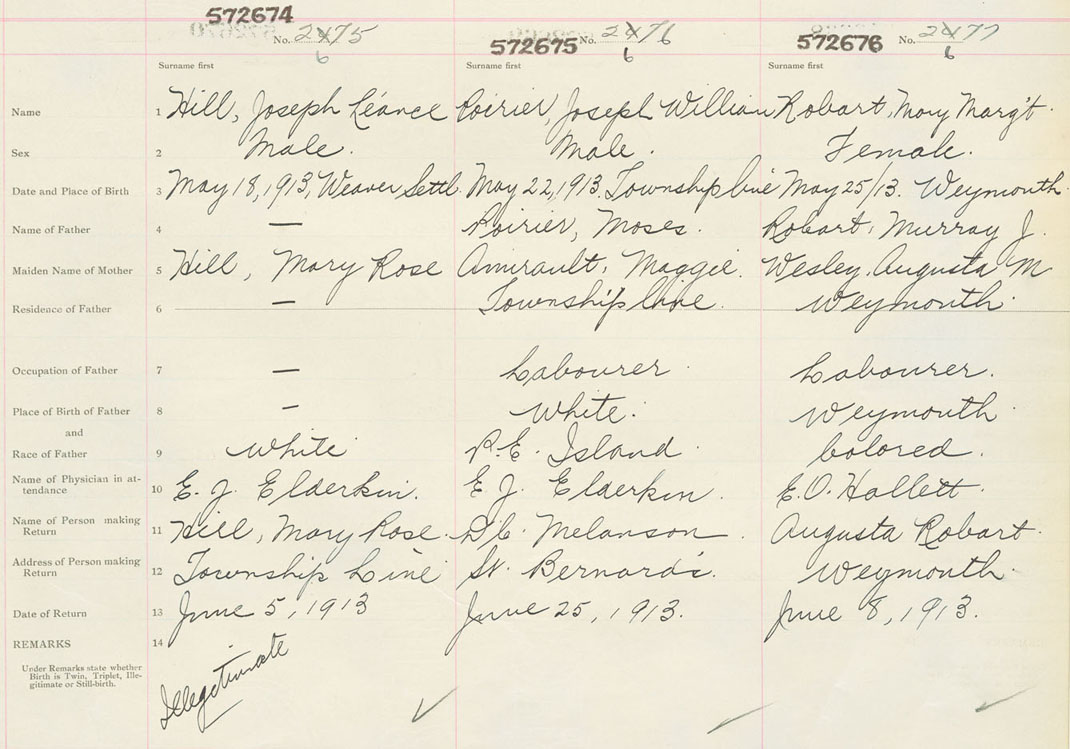 572674 572675 572676
No. 2475 No. 2476 No. 2477
6 6 6
Surname first Surname first Surname first
Name 1 Hill, Joseph Léance Poirier, Joseph William Robart, Mary Marg't.
Sex 2 Male. Male. Female.
Date and Place of Birth 3 May 18, 1913, Weaver Settl. May 22, 1913. Township line May 25/13. Weymouth
Name of Father 4 — Poirier, Moses. Robart, Murray J.
Maiden Name of Mother 5 Hill, Mary Rose Amirault, Maggie. Wesley, Augusta M
Residence of Father 6 — Township line. Weymouth.
Occupation of Father 7 — Labourer. Labourer.
Place of Birth of Father 8 — White. Weymouth
and
Race of Father 9 White P.E. Island Colored.
Name of Physician in at-
tendance 10 E. J. Elderkin. E J. Elderkin. E.O. Hallett.
Name of Person making
Return 11 Hill, Mary Rose. Melanson. Augusta Robart.
Address of Person making
Return 12 Township Line St. Bernard's. Weymouth.
Date of Return 13 June 5, 1913 June 25, 1913. June 8, 1913.
REMARKS 14
Under Remarks state whether
Birth is Twin, Triplet, Ille-
gitimate or Still-birth.
Illegitimate